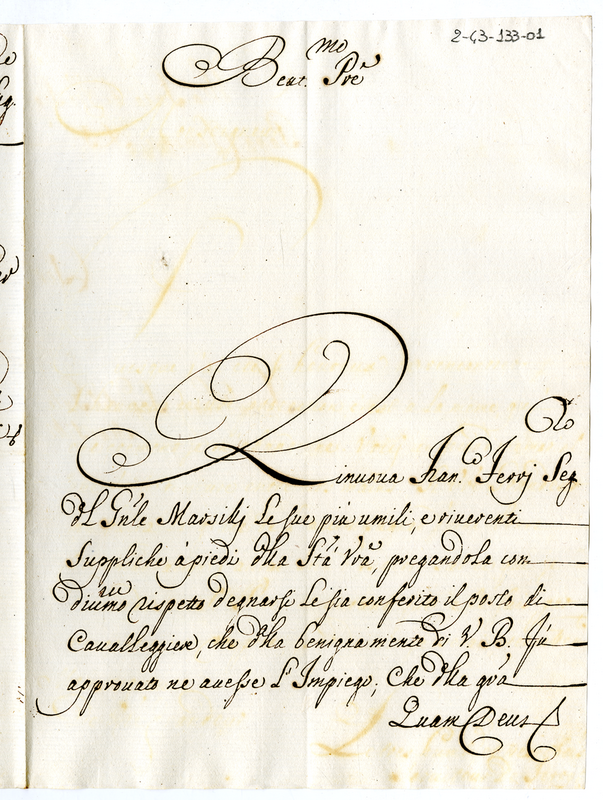 2-43-133-01
Beat.mo Pre
Rinuova Fran.co Ferrj Seg.rio
dl Gnle Marsilij le sue più umili, e riuerenti
Suppliche à piedi dlla Stà Vrã, pregandola con
diumo rispetto degnarsi le sia conferito il posto di
Caualleggiere, che dlla benignamente di V. B. fù
approuato ne auesse l'Impiego; Che dlla grã
Quam Deus